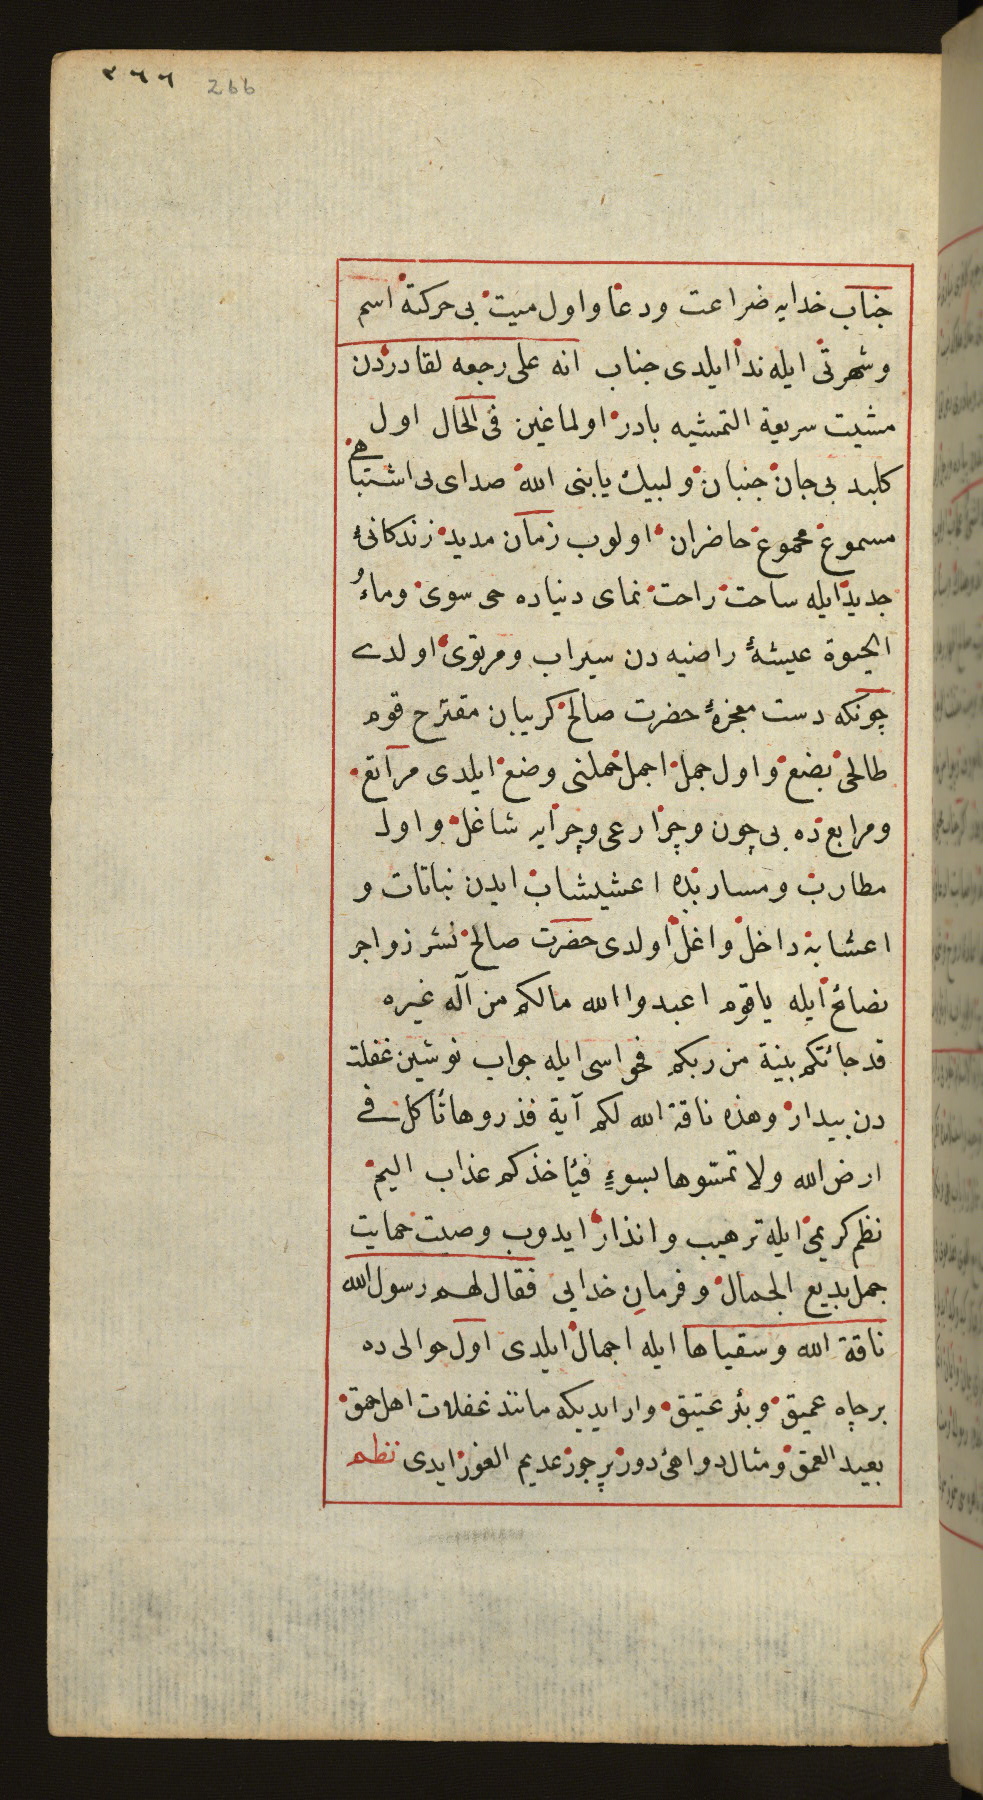 ٢٦٦ 266
جناب خدایه ضراعت ودعا واول میت بی حرکتهٔ اسم
وشهرتی ایله ندا ایلدی جناب انه علی رجعه لقادردن
مشیت سریعة التمشیه بادر اولماغین فی الحال اول
کلبد بی جان جنبان ولبیك یا بنی الله صدای بی اشتباهی
مسموع مجموع حاضران اولوب زمان مدید زندکانئ
جدید ایله ساحت راحت نمای دنیاده حی سوی وماءُ
الحیوة عیشهٔ راضیه دن سیراب ومرتوی اولدی
چونکه دست معجزهٔ حضرت صالح کریبان مقترح قوم
طالحی بضع واول جمل اجمل خملنی وضع ایلدی مراتع
ومرابع ده بی چون وچرا رعی وچرایه شاغل واول
مطارب ومساربده اعشیشاب ایدن نباتات و
اعشابه داخل واغل اولدی حضرت صالح نشر زواجر
نصائح ایله یاقوم اعبدوا الله مالکم من آله غیره
قد جائتکم بینة من ربکم فحواسی ایله جواب نوشین غفلت
دن بیدار وهذه ناقة الله لکم آیة فذروها تأکل فی
ارض الله ولا تمسّوها بسوءٍ فیأخذکم عذاب الیم
نظم کریمی ایله ترهیب وانذار ایدوب وصیت حمایت
جمل بدیع الجمال وفرمان خدایی فقال لهم رسول الله
ناقة الله وسقیاها ایله اجمال ایلدی اول حوالی ده
بر چاه عمیق وبئر عتیق وار ایدیکه مانند غفلات اهل حمق
بعید العمق ومثال دواهئ دور پرجور عدیم الغور ایدی نظم